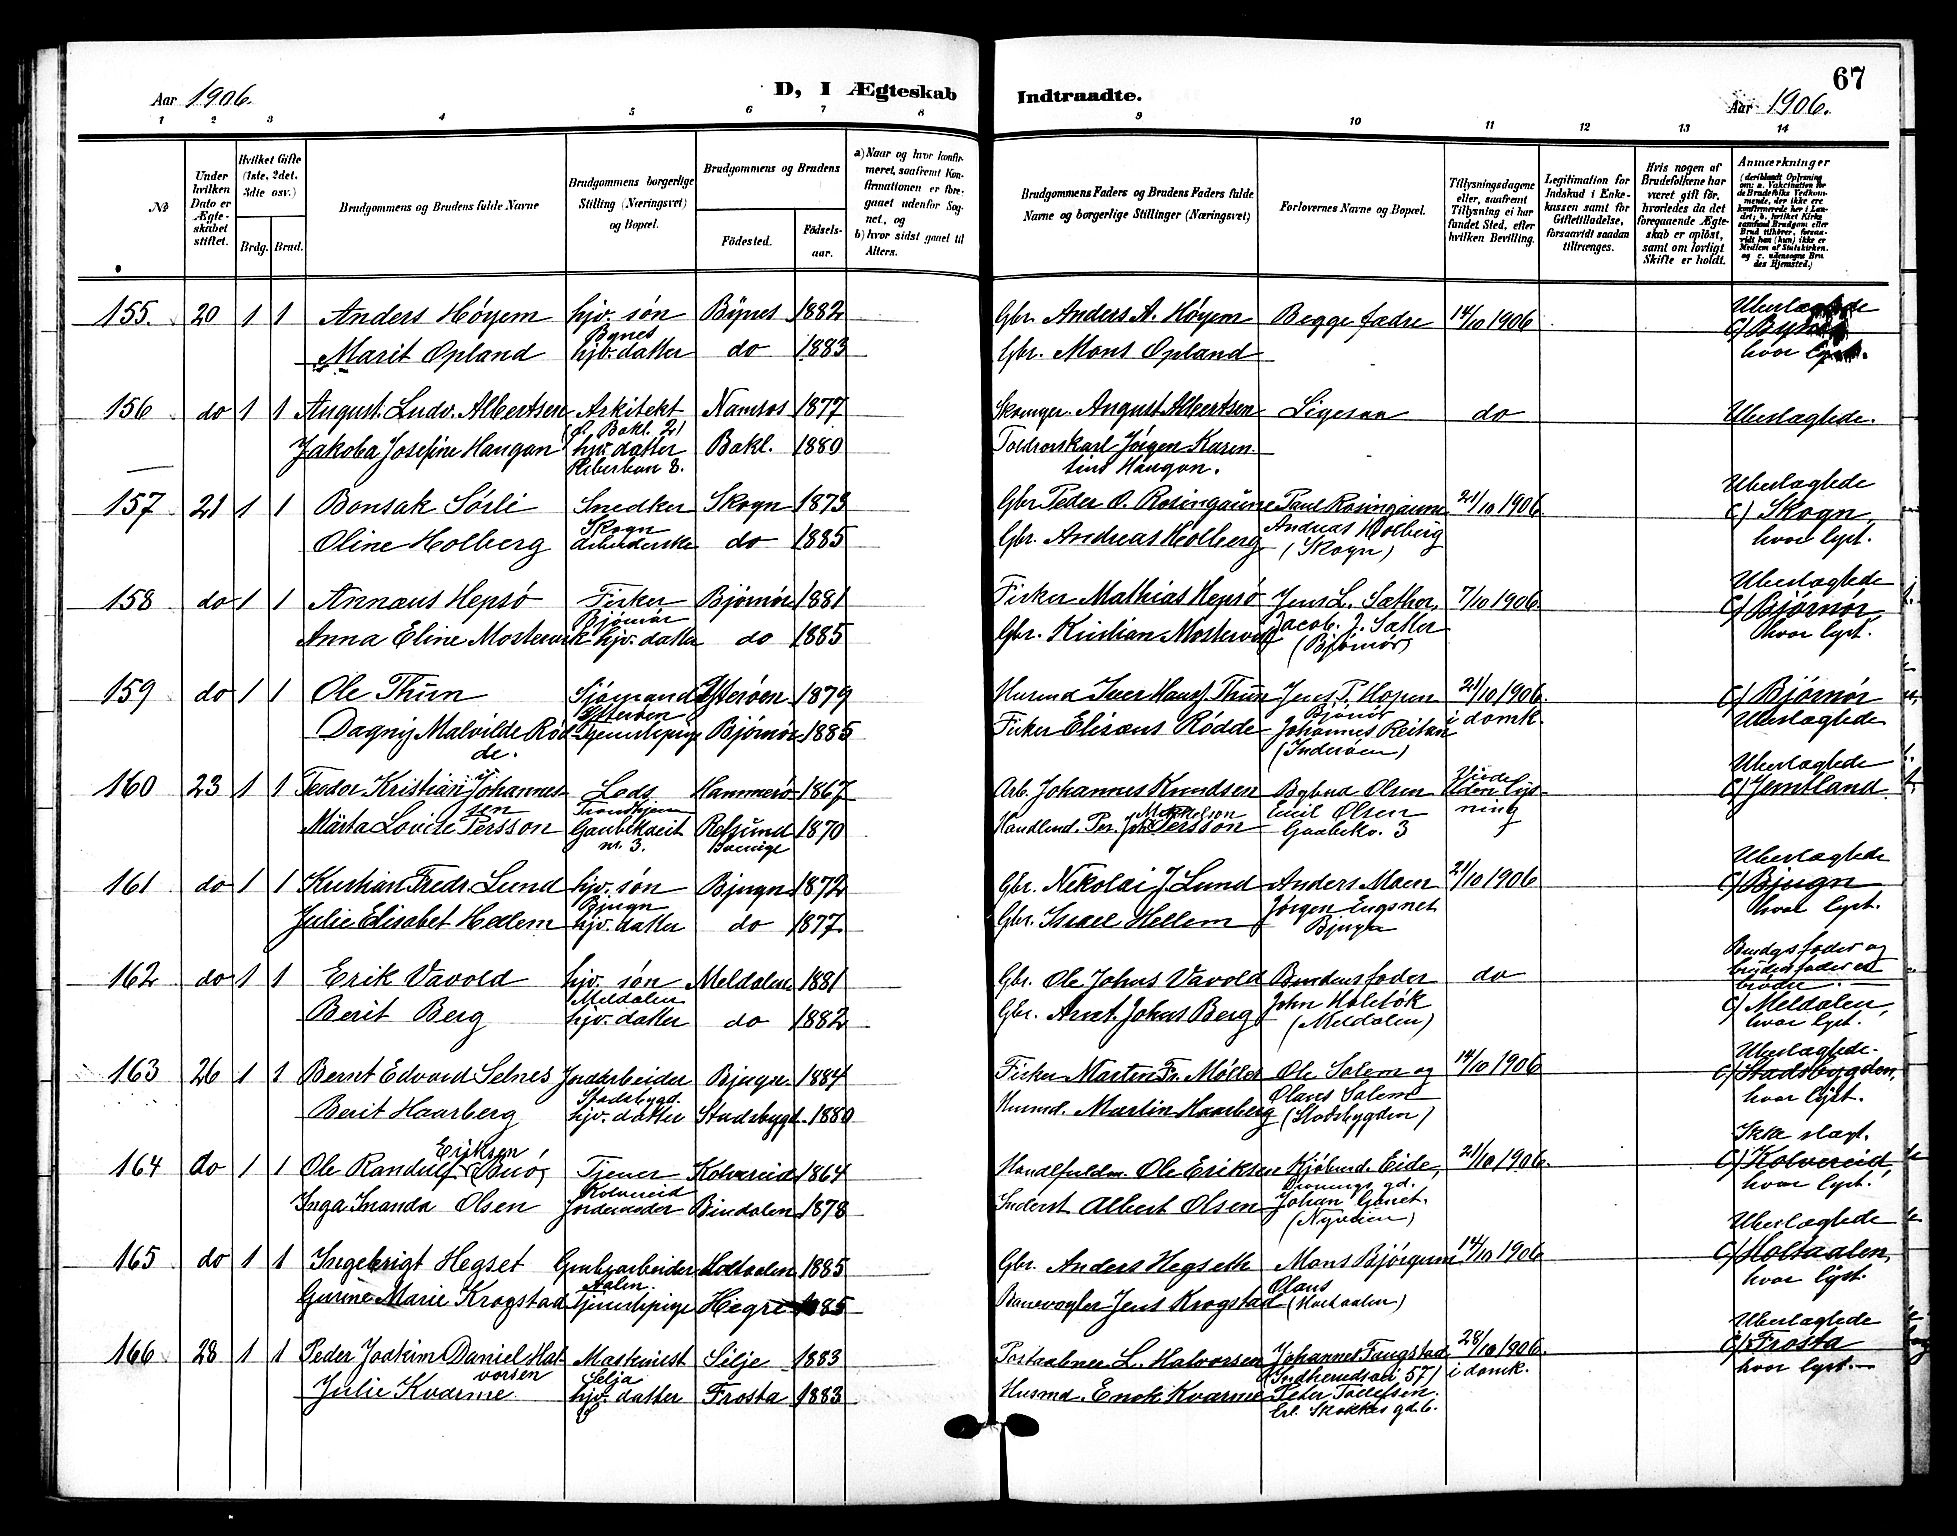 Aar 1906.
D, I Ægteskab Indtraadte.
67
Aar 1906.
1 2 3 4 5 6 7 8 9 10 11 12 13 14
№
Under hvilken Dato er Ægteskabet stiftet.
Hvilket Gifte (1ste, 2det, 3die osv.)
Brdg. Brud.
Brudgommens og Brudens fulde Navne
Brudgommens borgerlige Stilling (Næringsvei) og Bopæl.
Brudgommens og Brudens
Fødested. Fødselsaar.
a) Naar og hvor konfirmeret, saafremt Konfirmationen er foregaaet udenfor Sognet, og
b) hvor sidst gaaet til Alters.
Brudgommens Faders og Brudens Faders fulde Navne og borgerlige Stillinger (Næringsvei)
Forlovernes Navne og Bopæl.
Tillysningsdagene eller, saafremt Tillysning ei har fundet Sted, efter hvilken Bevilling.
Legitimation for Indskud i Enkekassen samt for Giftetilladelse, forsaavidt saadan tiltrænges.
Hvis nogen af Brudefolkene har været gift før, hvorledes da det foregaaende Ægteskab er opløst, samt om lovligt Skifte er holdt.
Anmærkninger
155. 20 1 1 Anders Høyem hjv. søn Bynes 1882 Gbr. Anders A. Høyem Begge fædre 14/10 1906 Ubeslægtede
Bynes
Marit Opland hjv. datter do 1883 Gbr. Mons Opland hvor lyst.
156 do 1 1 August. Ludv. Albertsen Arkitekt Namsos 1877 August Albertsen Ligesaa do Ubeslægtede.
Jakoba Josefine Haugan hjv. datter Bakl. 1880 Jørgen Karen
tius Haugan.
157 21 1 1 Bonsak Sørli Snedker Skogn 1873 Gbr. Peder O. Rosingaune Paul Rosingaune 21/10 1906 Ubeslægtede
Skogn c) Skogn,
Oline Holberg do 1885 Gbr. Andreas Holberg Andreas Holberg (Skogn) hvor lyst.
158 do 1 1 Annæus Hepsø Fisker Bjørnør 1881 Fisker Mathias Hepsø Jens L. Sæther, 7/10 1906 Ubeslægtede
Bjørnør c) Bjørnør
Anna Eline hjv. datter do 1885 Gbr. Kristian Jacob. J. Sæther (Bjørnør) hvor lyst.
159 do 1 1 Ole Thun Sjømand Ytterøen 1879 Husmd Iver Thun Jens P. Hopen 21/10 1906 c) Bjørnør
Ytterøen Bjørnør
Dagny Malvilde Rødde. Tjenestepige Bjørnør 1885 Fisker Elisæus Rødde Johannes Reitan i domk. Ubeslægtede
(Inderøen)
160 23 1 1 Teodor Kristian Johannessen Lods Hammerø 1867 Arb. Johannes Knudsen Bybud Olsen Ubeslægtede
Trondhjem c) Jemtland
Märta Lovise Persson nr. 3. Refsund 1870 Handlend. Per. Persson Emil Olsen 3
161 do 1 1 Kristian Fredr. Lund hjv. søn Bjugn 1872 Gbr. Nikolai J. Lund Anders Moen 21/10 1906 Ubeslægtede
Bjugn Jørgen c) Bjugn
Julie Elisabet Hellem hjv. datter do 1877. Gbr. Israel Hellem Bjugn hvor lyst.
162 do 1 1 Erik Vavold hjv. søn Meldalen 1881 Gbr. Ole Johns Vavold Brudens fader do Brudgs fader og brudens fader er brødre.
Meldalen John c) Meldalen,
Berit Berg hjv. datter do 1882 Gbr. Arnt Johns Berg (Meldalen) hvor lyst.
163 26 1 1 Bernt Edvard Selnes Jordarbeider Bjugn 1884 Fisker Martin Fr. Møller Ole Salem og 14/10 1906 Ubeslægtede.
Stadsbygd. Olaus Salem c) Stadsbygden,
Berit Haarberg hjv. datter Stadsbygd. 1880 Husmd. Martin Haarberg (Stadsbygden) hvor lyst.
164 do 1 1 Ole Randulf Eriksen Tjener Kolvereid 1864 Ole Eriksen Eide, 21/10 1906. Ikke slægt.
Kolvereid c) Kolvereid,
Inga Olsen Bindalen 1878 Inderst Albert Olsen Johan hvor lyst.
165 do 1 1 Ingebrigt Hegset Grubearbeider Holtaalen 1885 Gbr. Anders Hegseth Mons Bjørgum 14/10 1906 Ubeslægtede
Aalen. Olaus c) Holtaalen,
Gurine Marie Krogstad Tjenestepige Hegre 1885 Banevogter Jens Krogstad (Holtaalen) hvor lyst.
166 28 1 1 Peder Joakim Daniel Halvorsen Maskinist Selje 1883 Postaabner L. Halvorsen Johannes Faugstad 28/10 1906. Ubeslægtede
Selje 57) c) Frosta
Julie Kvarme hjv. datter Frosta 1883 Husmd. Enok Kvarme Peder Tollefsen. i domk. hvor lyst.